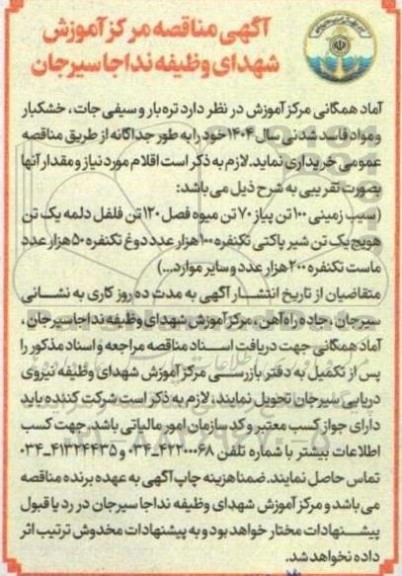 آگهی مناقصه مرکز آموزش
شهدای وظیفه نداجا سیرجان
آماد همگانی مرکز آموزش در نظر دارد تره بار و سیفی جات، خشکبار
و مواد فاسد شدنی سال ۱۴۰۴ خود را به طور جداگانه از طریق مناقصه
عمومی خریداری نماید. لازم به ذکر است اقلام مورد نیاز و مقدار آنها
بصورت تقریبی به شرح ذیل می باشد:
(سیب زمینی ۱۰۰ تن پیاز ۷۰ تن میوه فصل ۱۲۰ تن فلفل دلمه یک تن
هویج یک تن شیر پاکتی تکنفره ۱۰۰ هزار عدد دوغ تکنفره ۵۰ هزار عدد
ماست تکنفره ۲۰۰ هزار عدد و سایر موارد...)
متقاضیان از تاریخ انتشار آگهی به مدت ده روز کاری به نشانی
سیرجان، جاده راه آهن، مرکز آموزش شهدای وظیفه نداجا سیرجان،
آماد همگانی جهت دریافت اسناد مناقصه مراجعه و اسناد مذکور را
پس از تکمیل به دفتر بازرسی مرکز آموزش شهدای وظیفه نیروی
دریایی سیرجان تحویل نمایند، لازم به ذکر است شرکت کننده باید
دارای جواز کسب معتبر و کد سازمان امور مالیاتی باشد. جهت کسب
اطلاعات بیشتر با شماره تلفن ۴۲۲۰۰۰۶۸-۰۳۴ و ۴۱۳۲۴۴۳۵-۰۳۴
تماس حاصل نمایند. ضمنا هزینه چاپ آگهی به عهده برنده مناقصه
می باشد و مرکز آموزش شهدای وظیفه نداجا سیرجان در رد یا قبول
پیشنهادات مختار خواهد بود و به پیشنهادات مخدوش ترتیب اثر
داده نخواهد شد.